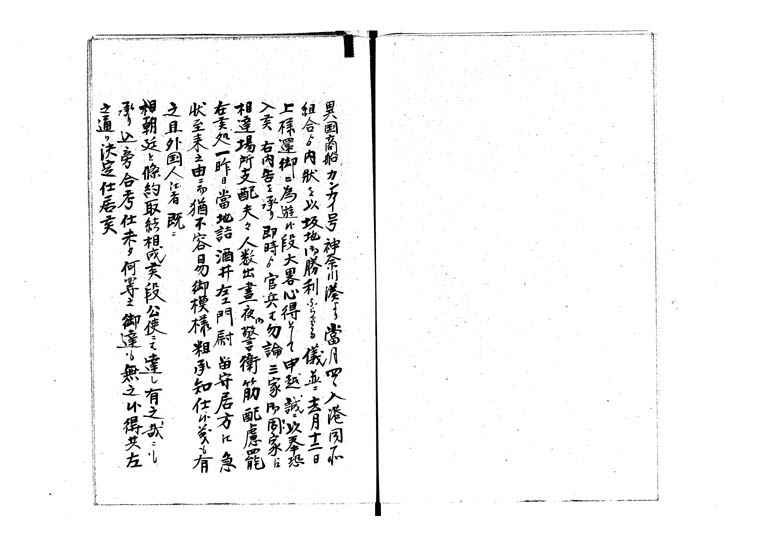 異国商船カンカイ号神奈川港ヨリ當月四日入港同所
組合ゟ内状ヲ以坂地御勝利 儀並ニ去月十二日
上様還御ニ為遊候段大畧心得トシテ申越誠ニ以奉恐
入候右内告ヲ承リ即時ゟ官兵ハ勿論三家御同家ニ
相達場所支配夫々人数出晝夜警衛筋配慮罷
在候処一昨日當地詰酒井左エ門尉留守居方江急
状至来之由ニ而猶不容易御模様粗承知仕候義も有
之且外国人江者既ニ
相朝廷と條約取結相成候段公使ゟ達し有之哉ニも
承り込旁合考仕未タ何等之御達も無之候得共左
之通り決定仕居候